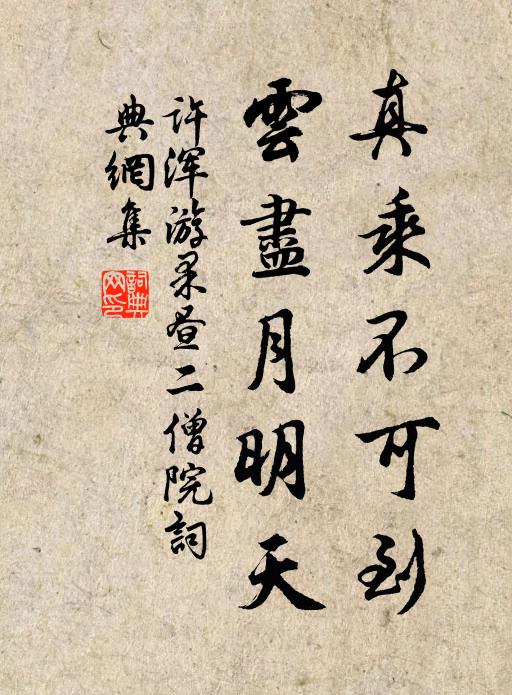 真乘不可到
雲盡月明天
許浑游果昼二僧院詞
典網集
詞典
网印